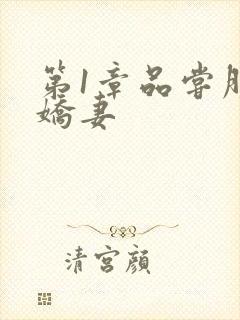 第1章品尝胖
娇妻
清宫颜